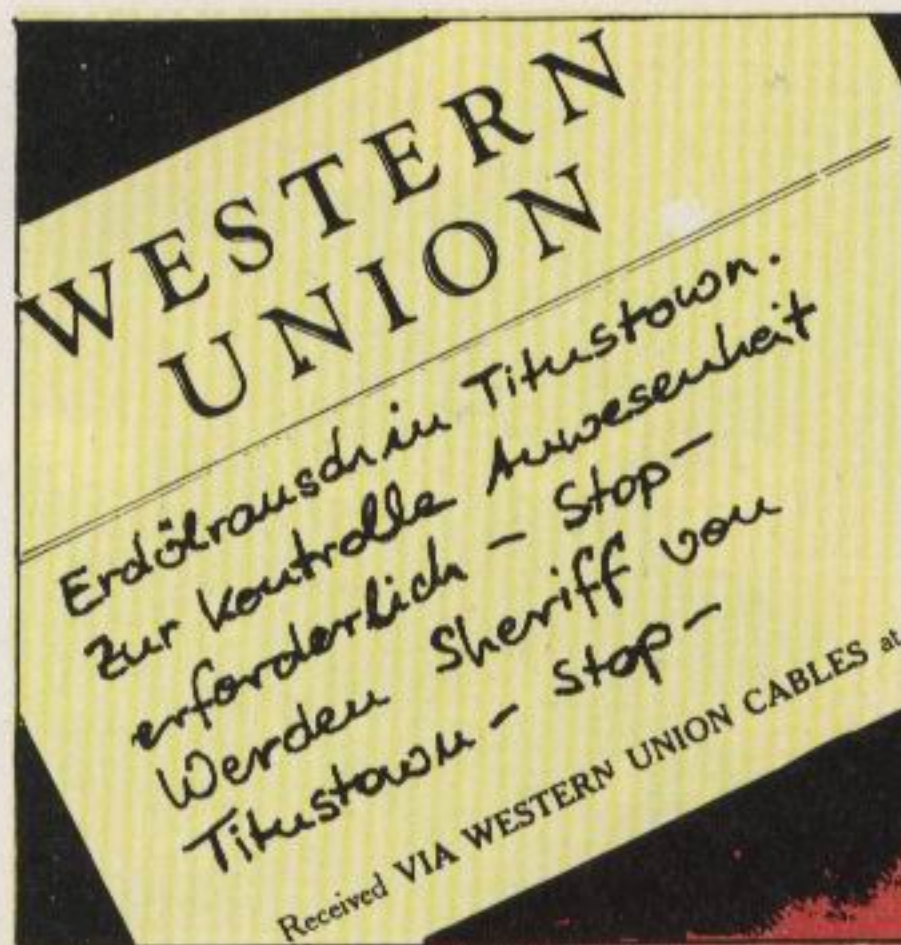 WESTERN
UNION
Erdölrausch in Titustown.
Zur Kontrolle Anwesenheit
erforderlich - Stop -
Werden Sheriff von
Titustown - Stop -
Received VIA WESTERN UNION CABLES at